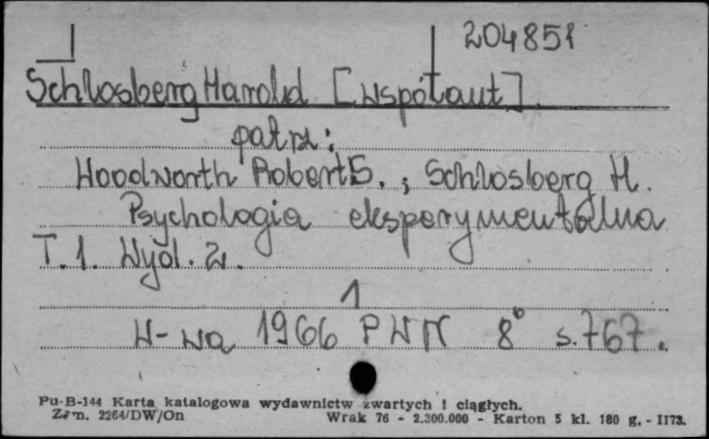 204851
Schlosberg Harold [współaut]
patrz:
Woodworth Robert S. ; Schlosberg H.
Psychologia eksperymentalna
T. 1. Wyd. 2.
1
W-wa 1966 PWN 8° s. 767.
Pu-B-144 Karta katalogowa wydawnictw zwartych i ciągłych.
Zam. 2264/DW/On Wrak 76 - 2.300.000 - Karton 5 kl. 180 g. - II73.